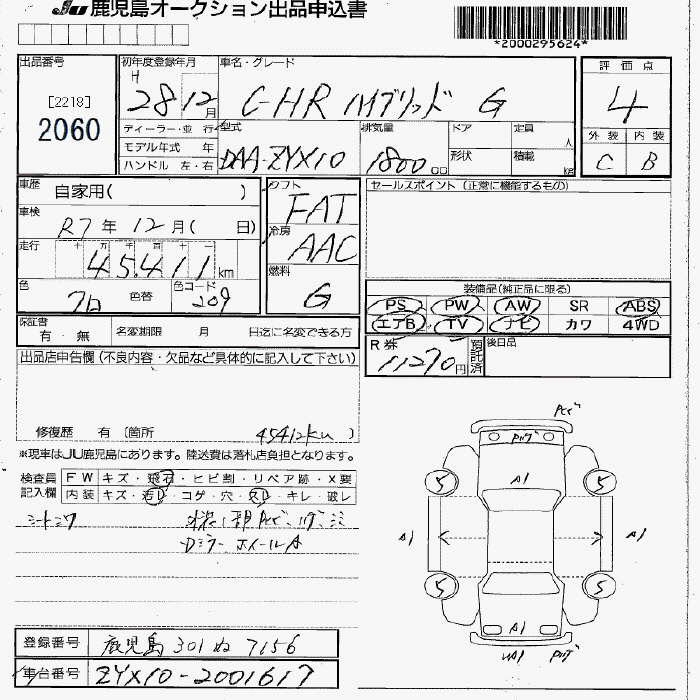 JU 鹿児島オークション出品申込書
*2000295624*
出品番号 [2218] 2060
初年度登録年月 H 28年12月
車名・グレード C-HR ハイブリッド G
評価点 4
外装 C 内装 B
ディーラー・並行
モデル年式 年
ハンドル 左・右
型式 DAA-ZYX10
排気量 1800 cc
ドア 形状
定員 人
積載 kg
車歴 自家用( )
車検 R7年12月( 日)
走行 十 万 千 百 十 一 45411 km
色 クロ 色替 色コード 209
シフト FAT
冷房 AAC
燃料 G
セールスポイント (正常に機能するもの)
装備品(純正品に限る)
PS PW AW SR ABS
エアB TV ナビ カワ 4WD
保証書 有・無 名変期限 月 日迄に名変できる方
R券 11270円 預託済 後日品
出品店申告欄 (不良内容・欠品など具体的に記入して下さい)
修復歴 有 (箇所 45412km )
※現車はJU鹿児島にあります。陸送費は落札店負担となります。
検査員記入欄 FW キズ・飛石・ヒビ割・リペア跡・X要
内装 キズ・汚れ・コゲ・穴・欠・キレ・破レ
Dミラー ホイールA
A1
5 5
A1 A1
5 5
A1
登録番号 鹿児島 301 ぬ 7156
車台番号 ZYX10-2001617